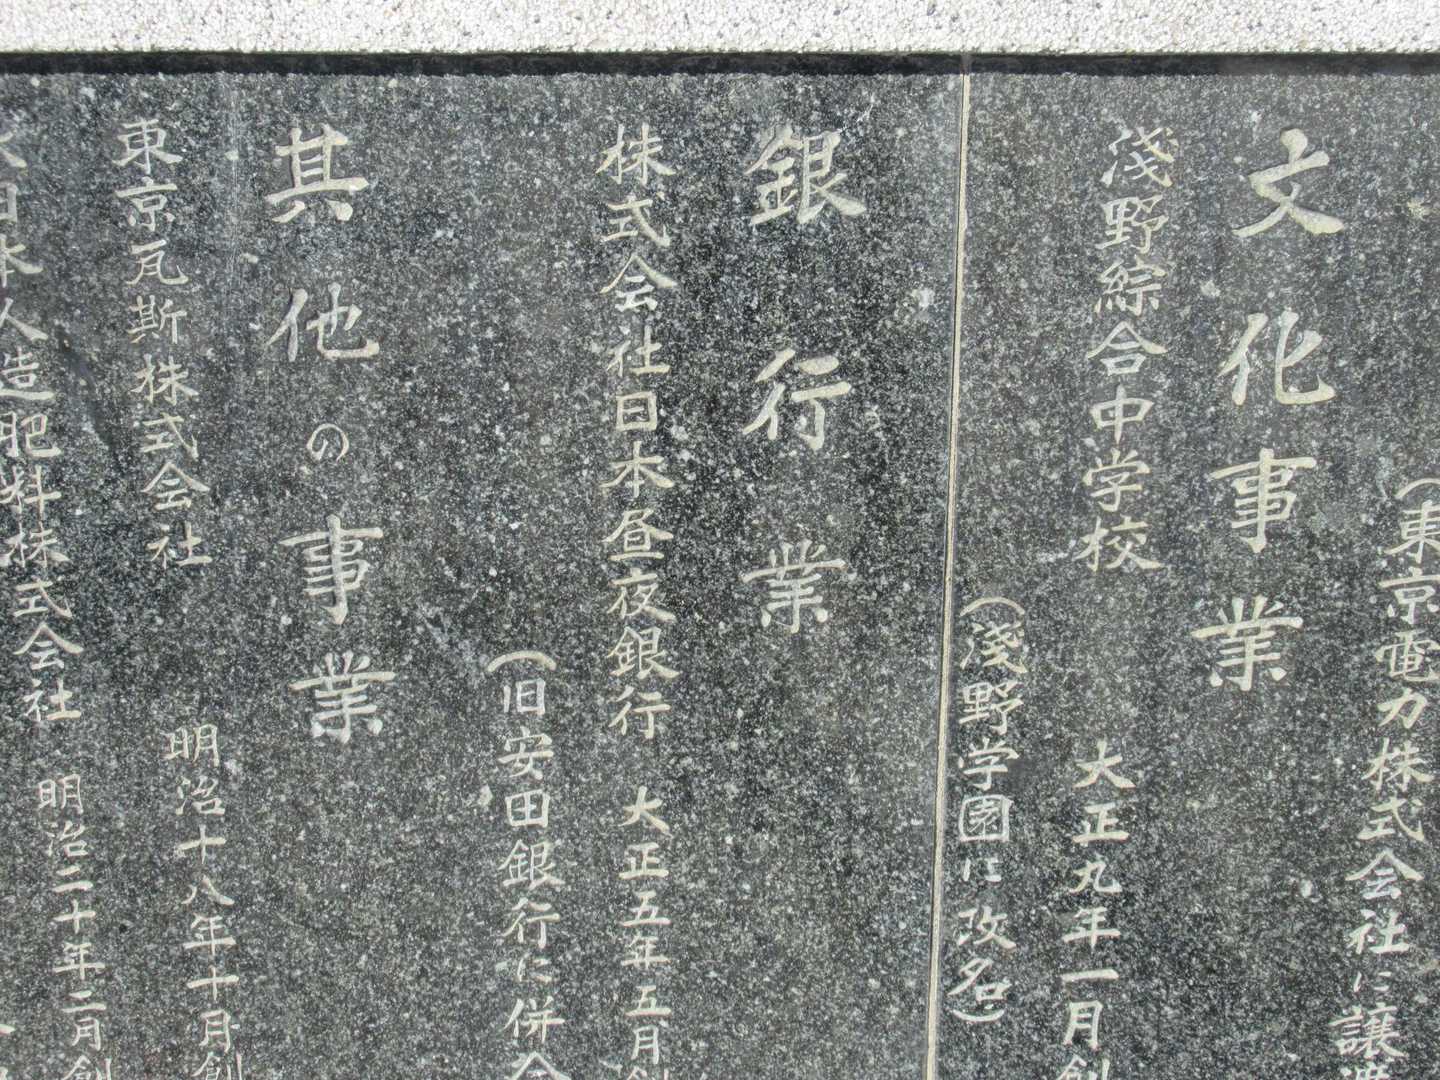 (東京電力株式会社に譲渡
文化事業
淺野綜合中学校 大正九年一月創
(淺野学園に改名)
銀行業
株式会社日本昼夜銀行 大正五年五月創
(旧安田銀行に併合
其他の事業
東京瓦斯株式会社 明治十八年十月創
大日本人造肥料株式会社 明治二十年二月創